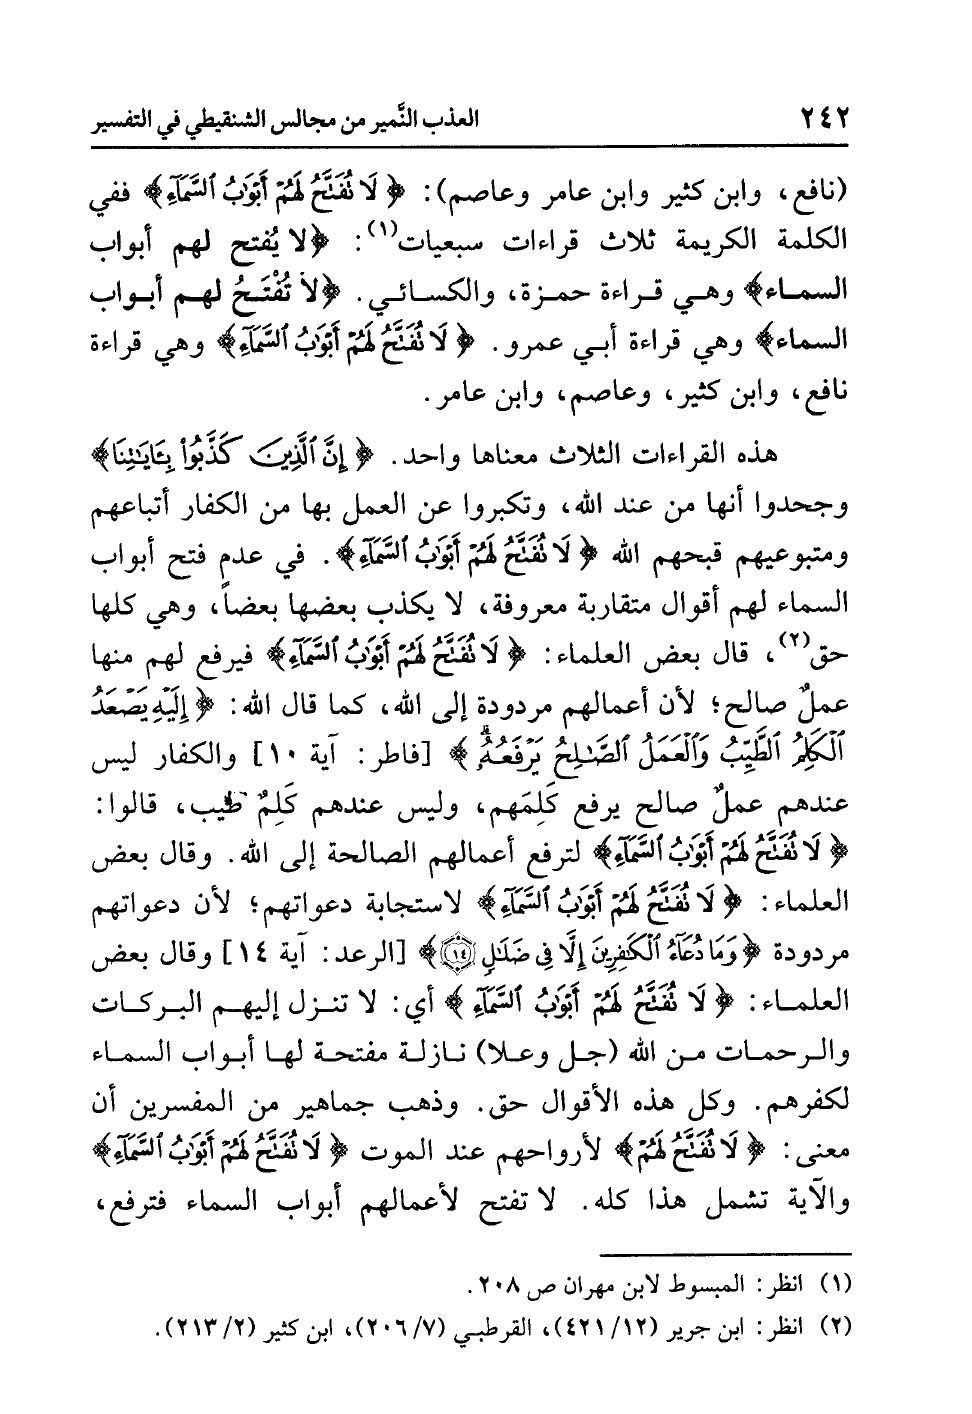 ٢٤٢ العذب النَّمير من مجالس الشنقيطي في التفسير
(نافع، وابن كثير وابن عامر وعاصم): ﴿لَا تُفَتَّحُ لَهُمْ أَبْوَٰبُ ٱلسَّمَآءِ﴾ ففي
الكلمة الكريمة ثلاث قراءات سبعيات(١): ﴿لا يُفتح لهم أبواب
السماء﴾ وهي قراءة حمزة، والكسائي. ﴿لاَ تُفْتَحُ لهم أبواب
السماء﴾ وهي قراءة أبي عمرو. ﴿لَا تُفَتَّحُ لَهُمْ أَبْوَٰبُ ٱلسَّمَآءِ﴾ وهي قراءة
نافع، وابن كثير، وعاصم، وابن عامر.
هذه القراءات الثلاث معناها واحد. ﴿إِنَّ ٱلَّذِينَ كَذَّبُوا۟ بِـَٔايَـٰتِنَا﴾
وجحدوا أنها من عند الله، وتكبروا عن العمل بها من الكفار أتباعهم
ومتبوعيهم قبحهم الله ﴿لَا تُفَتَّحُ لَهُمْ أَبْوَٰبُ ٱلسَّمَآءِ﴾. في عدم فتح أبواب
السماء لهم أقوال متقاربة معروفة، لا يكذب بعضها بعضاً، وهي كلها
حق(٢)، قال بعض العلماء: ﴿لَا تُفَتَّحُ لَهُمْ أَبْوَٰبُ ٱلسَّمَآءِ﴾ فيرفع لهم منها
عملٌ صالح؛ لأن أعمالهم مردودة إلى الله، كما قال الله: ﴿إِلَيْهِ يَصْعَدُ
ٱلْكَلِمُ ٱلطَّيِّبُ وَٱلْعَمَلُ ٱلصَّـٰلِحُ يَرْفَعُهُۥۚ﴾ [فاطر: آية ١٠] والكفار ليس
عندهم عملٌ صالح يرفع كَلِمَهم، وليس عندهم كَلِمٌ طيب، قالوا:
﴿لَا تُفَتَّحُ لَهُمْ أَبْوَٰبُ ٱلسَّمَآءِ﴾ لترفع أعمالهم الصالحة إلى الله. وقال بعض
العلماء: ﴿لَا تُفَتَّحُ لَهُمْ أَبْوَٰبُ ٱلسَّمَآءِ﴾ لاستجابة دعواتهم؛ لأن دعواتهم
مردودة ﴿وَمَا دُعَآءُ ٱلْكَـٰفِرِينَ إِلَّا فِى ضَلَـٰلٍ ١٤﴾ [الرعد: آية ١٤] وقال بعض
العلماء: ﴿لَا تُفَتَّحُ لَهُمْ أَبْوَٰبُ ٱلسَّمَآءِ﴾ أي: لا تنزل إليهم البركات
والرحمات من الله (جل وعلا) نازلة مفتحة لها أبواب السماء
لكفرهم. وكل هذه الأقوال حق. وذهب جماهير من المفسرين أن
معنى: ﴿لَا تُفَتَّحُ لَهُمْ﴾ لأرواحهم عند الموت ﴿لَا تُفَتَّحُ لَهُمْ أَبْوَٰبُ ٱلسَّمَآءِ﴾
والآية تشمل هذا كله. لا تفتح لأعمالهم أبواب السماء فترفع،
(١) انظر: المبسوط لابن مهران ص ٢٠٨.
(٢) انظر: ابن جرير (١٢/ ٤٢١)، القرطبي (٧/ ٢٠٦)، ابن كثير (٢/ ٢١٣).